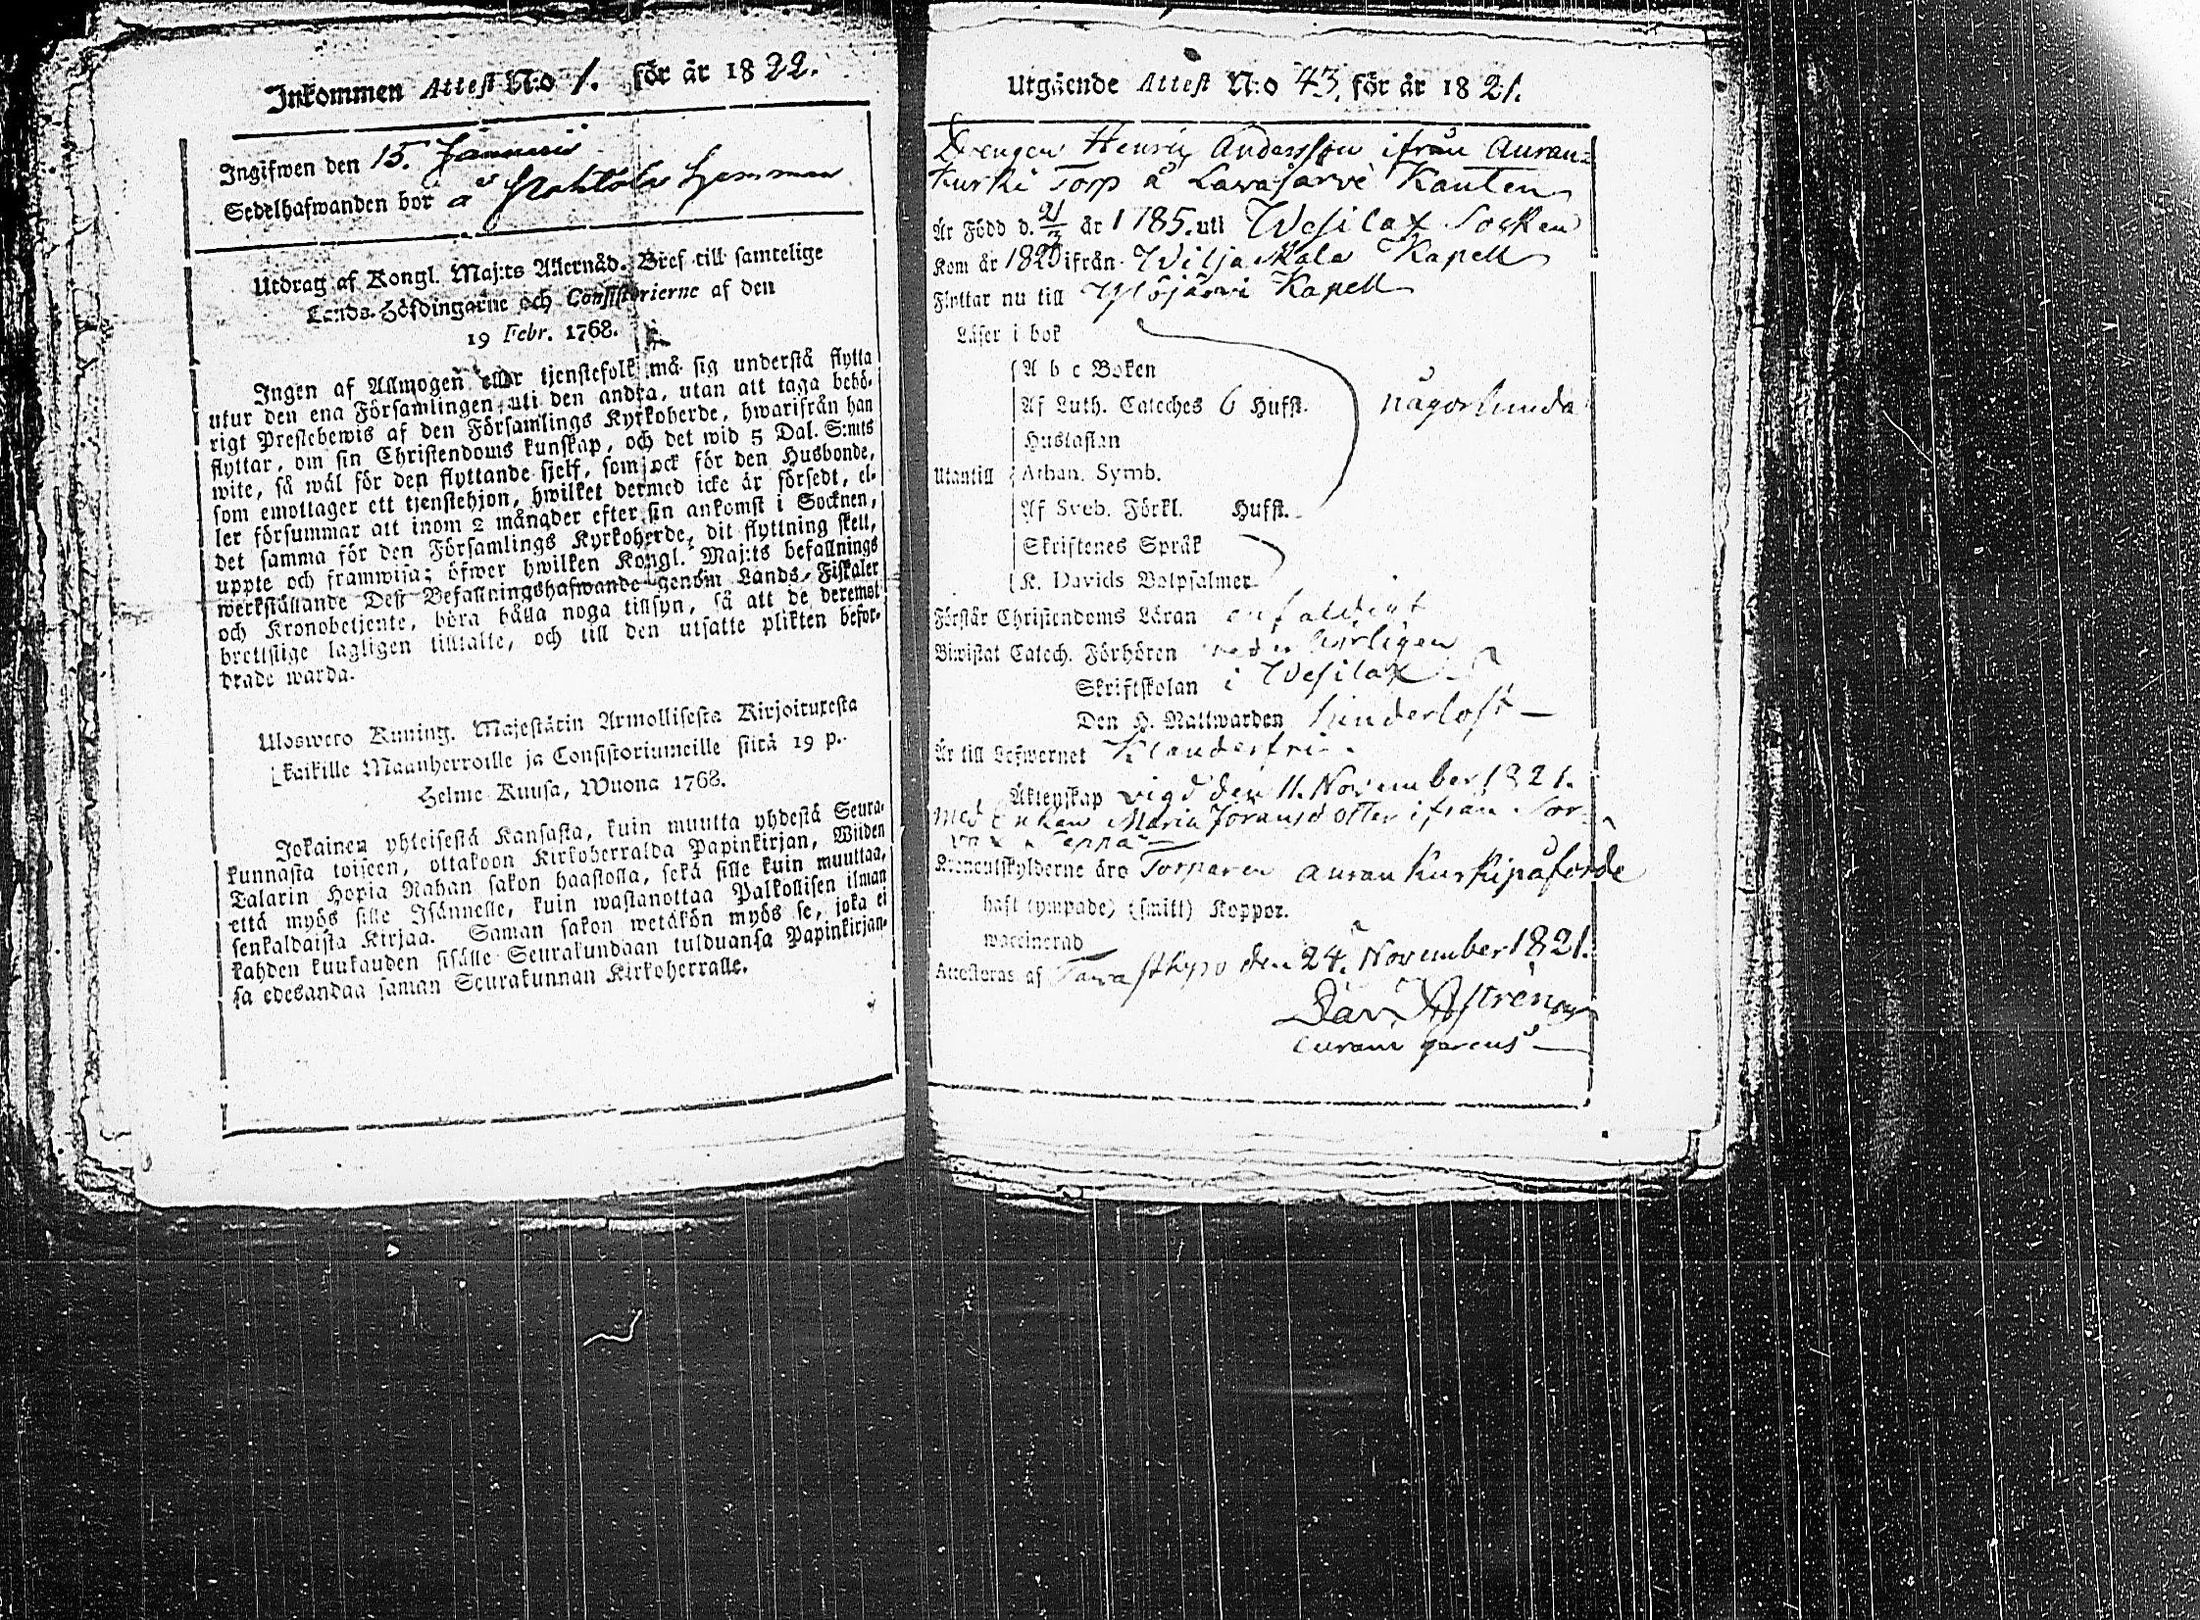 Inkommen Attest N:o 1. för år 1822.
Ingifwen den 15. Januarii
Sedelhafwanden bor å Hemman
Utdrag af Kongl. Maj:ts Allernåd. Bref till samtelige
Lands-Höfdingarne och Consistorierne af den
19 Febr. 1768.
Ingen af Allmogen eller tjenstefolk må sig understå flytta
utur den ena Församlingen uti den andra, utan att taga behö-
rigt Prestebewis af den Församlings Kyrkoherde, hwarifrån han
flyttar, om sin Christendoms kunskap, och det wid 5 Dal. S:mts
wite, så wäl för den flyttande sjelf, som ock för den Husbonde,
som emottager ett tjenstehjon, hwilket dermed icke är försedt, el-
ler försummar att inom 2 månader efter sin ankomst i Socknen,
det samma för den Församlings Kyrkoherde, dit flyttning skett,
uppte och framwisa; öfwer hwilken Kongl. Maj:ts befallnings
werkställande Dess Befallningshafwande genom Lands-Fiskaler
och Kronobetjente, böra hålla noga tillsyn, så att de deremot
brottslige lagligen tilltalte, och till den utsatte plikten befor-
drade warda.
Ulosweto Kuning. Majestätin Armollisesta Kirjoituxesta
kaikille Maanherroille ja Consistoriumeille siitä 19 p.
Helme Kuusa, Wuona 1768.
Jokainen yhteisestä Kansasta, kuin muutta yhdestä Seura-
kunnasta toiseen, ottakoon Kirkoherralda Papinkirjan, Wiiden
Talarin Hopia Rahan sakon haastolla, sekä sille kuin muuttaa,
että myös sille Isännelle, kuin wastanottaa Palkollisen ilman
senkaldaista Kirjaa. Saman sakon wetäkön myös se, joka ei
kahden kuukauden sisälle Seurakundaan tulduansa Papinkirjan-
sa edesandaa saman Seurakunnan Kirkoherralle.
Utgående Attest N:o 43. för år 1821.
Drengen Henric Andersson ifrån Auran-
kurki Torp å Lavajärvi Kanten
Är Född d. 21/3 år 1785. uti Wesilax Socken
Kom år 1820 ifrån Wiljakkala Kapell
Flyttar nu till Ylöjärvi Kapell
Läser i bok
A b c Boken
Af Luth. Cateches 6 Hufst. någorlunda
Hustaflan
Utantill Athan. Symb.
Af Sveb. Förkl. Hufst.
Skriftenes Språk
K. Davids Botpsalmer
Förstår Christendoms Läran enfaldigt
Biwistat Catech. Förhören
Skriftskolan i Wesilax
Den H. Nattwarden hinderlöst
Är till Lefwernet Klanderfri
Äktenskap vigd den 11. November 1821.
med Enkan Maria Göransdotter ifrån
äro Torparen Aurankurki påförde
haft (ympade) (smitt) Koppor.
waccinerad
Attesteras af Tavastkyro den 24. November 1821.